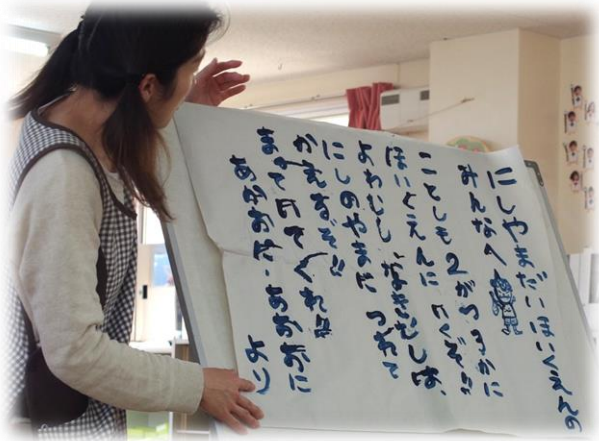 にしやまだいほいくえんの
みんなへ
ことしも2がつ3かに
ほいくえんに いくぞ!!
よわむし なきむしは、
にしのやまに つれて
かえるぞ!!
あかおに・あおおに
より